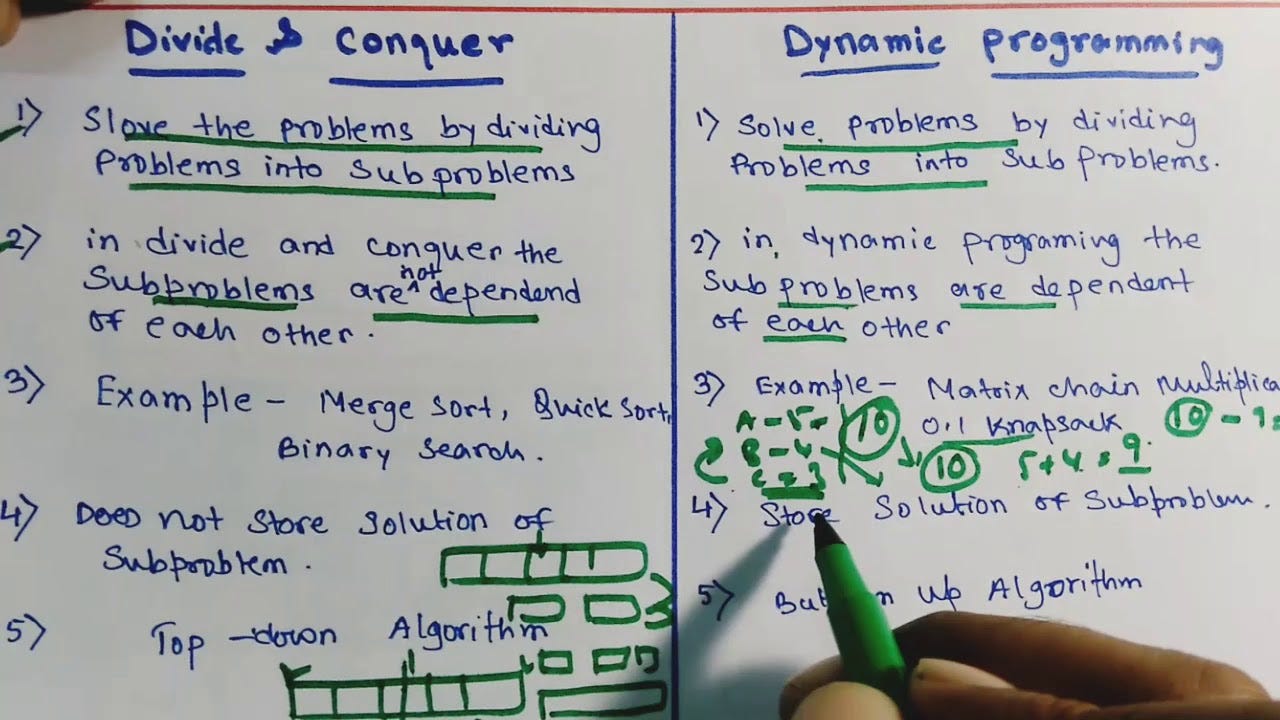 Divide & Conquer
1) Slove the problems by dividing
Problems into Subproblems
2) in divide and conquer the
not
Subproblems are ^ dependend
of each other.
3) Example - Merge sort, Quick Sort,
Binary Search.
4) Does not store solution of
Subproblem.
5) Top-down Algorithm
Dynamic programming
1) Solve problems by dividing
Problems into Sub Problems.
2) in dynamic programing the
Sub problems are dependent
of each other
3) Example - Matrix chain Multiplica
0.1 Knapsack
10 - 9
A - 5 -
B - 4
C = 3
10
10
5+4 = 9
4) Store Solution of Subproblem.
5) up Algorithm